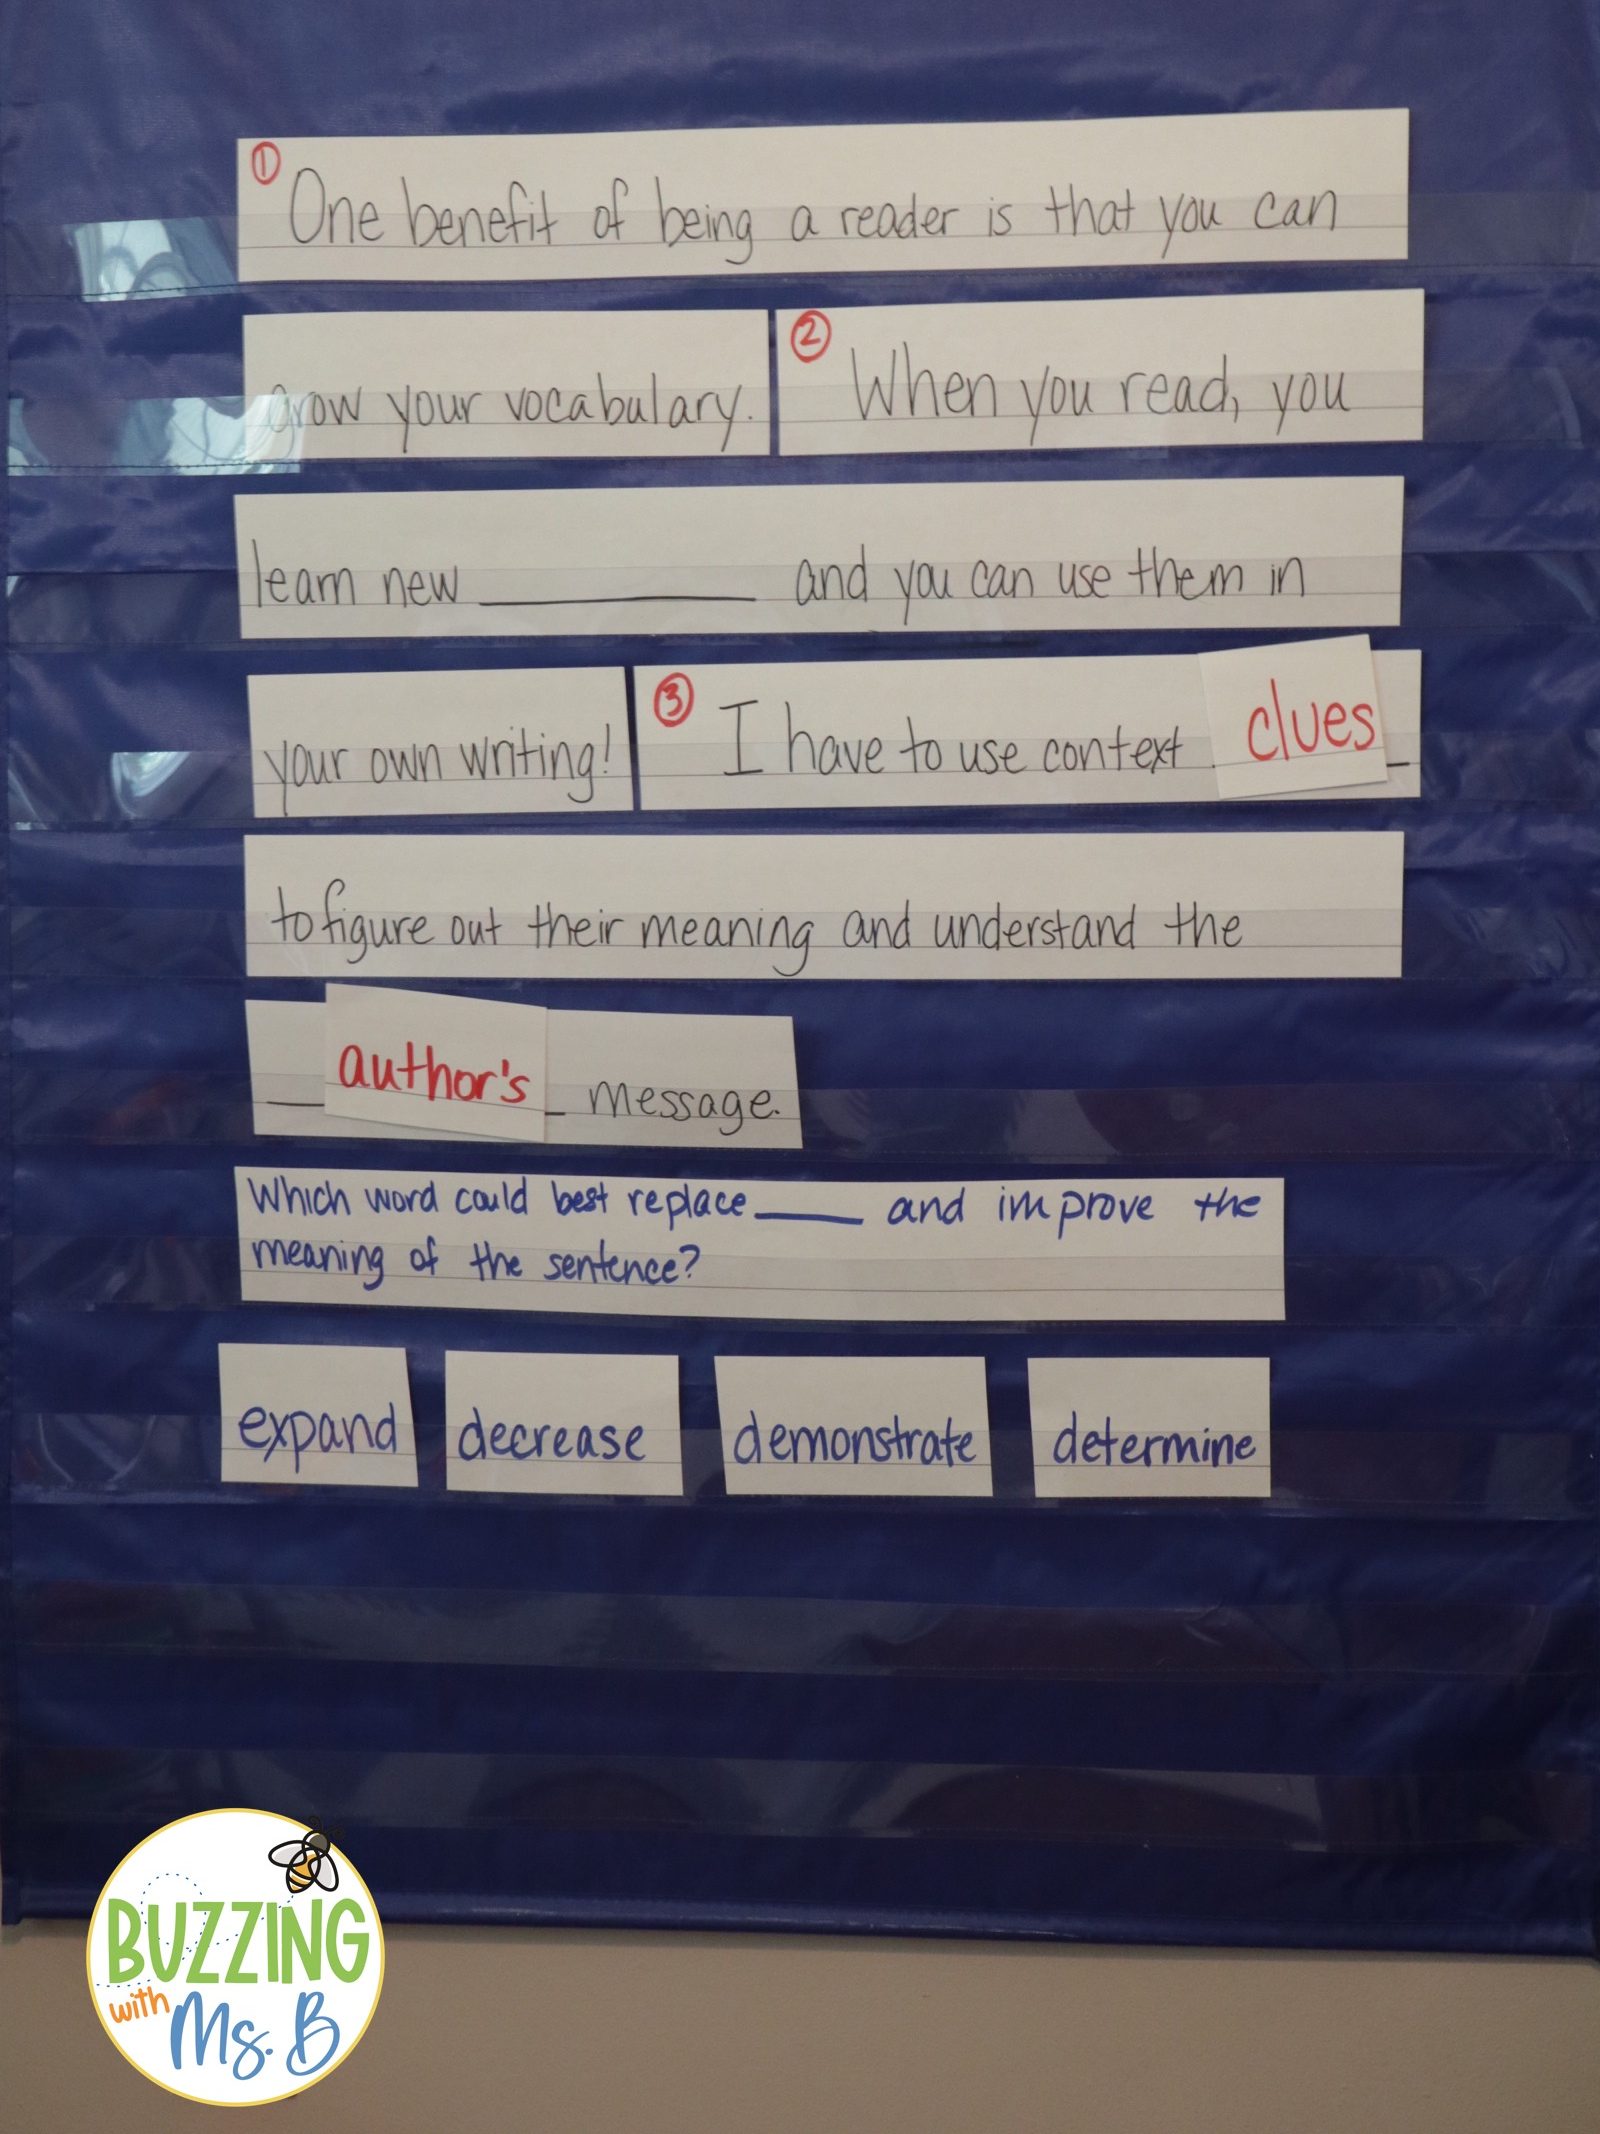 ① One benefit of being a reader is that you can
grow your vocabulary. ② When you read, you
learn new ________ and you can use them in
your own writing! ③ I have to use context clues_
to figure out their meaning and understand the
_author's_ message.
Which word could best replace ____ and improve the
meaning of the sentence?
expand decrease demonstrate determine
BUZZING
with
Ms. B